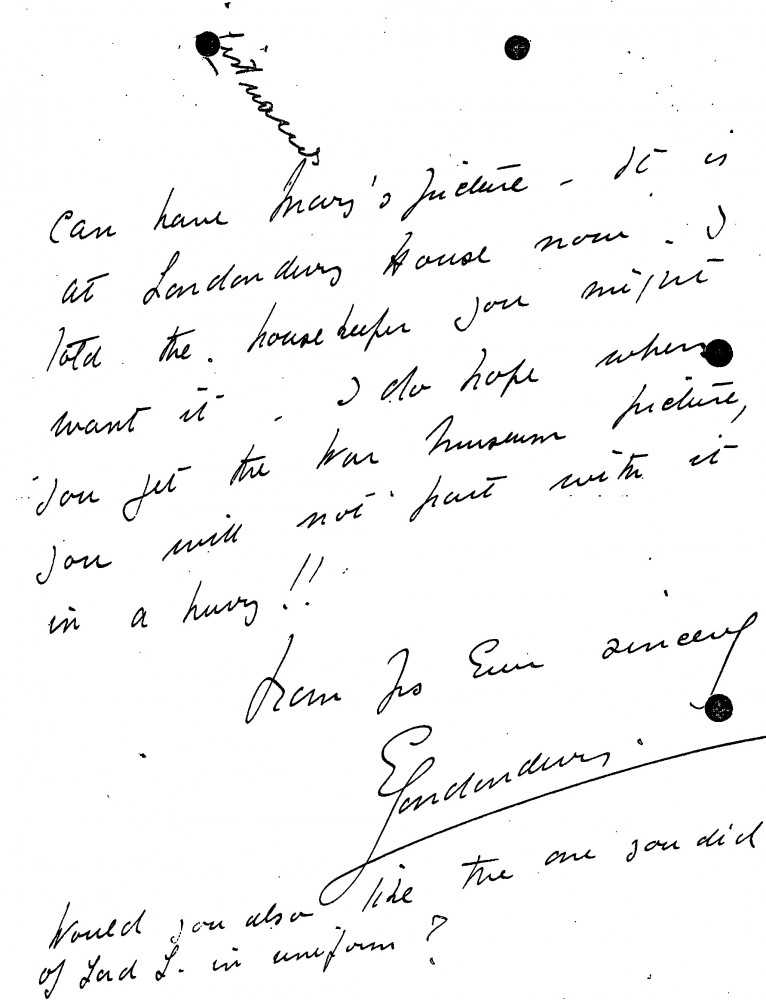 can have Mary's picture - It is
at Londonderry House now. I
told the housekeeper you might
want it - I do hope when
you get the War Museum picture,
you will not part with it
in a hurry!!
from Yrs Ever sincerely
E Londonderry.
Would you also like the one you did
of Lord L. in uniform?